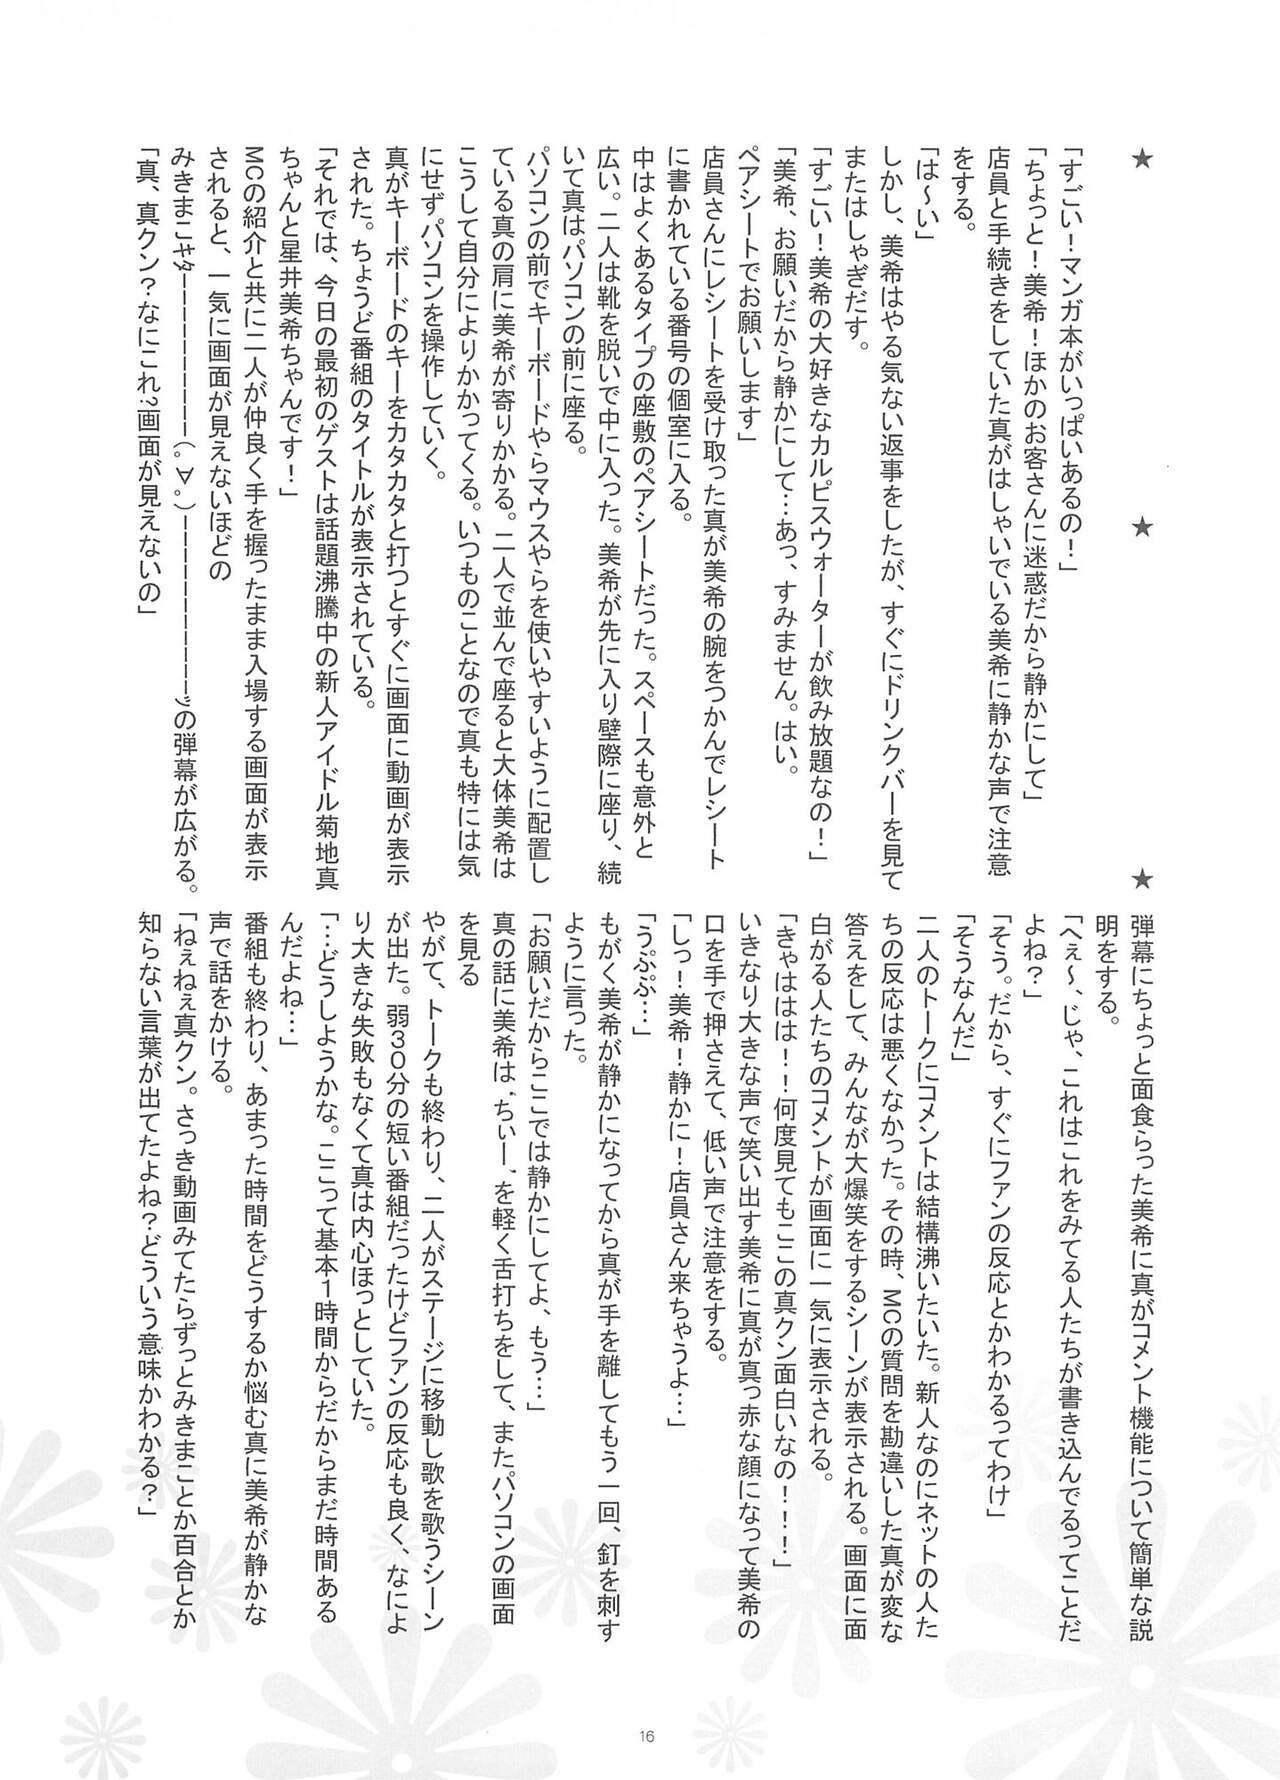 ★　★　★
「すごい！マンガ本がいっぱいあるの！」
「ちょっと！美希！ほかのお客さんに迷惑だから静かにして」
店員と手続きをしていた真がはしゃいでいる美希に静かな声で注意
をする。
「は～い」
しかし、美希はやる気ない返事をしたが、すぐにドリンクバーを見て
またはしゃぎだす。
「すごい！美希の大好きなカルピスウォーターが飲み放題なの！」
「美希、お願いだから静かにして…あっ、すみません。はい。
ペアシートでお願いします」
店員さんにレシートを受け取った真が美希の腕をつかんでレシート
に書かれている番号の個室に入る。
中はよくあるタイプの座敷のペアシートだった。スペースも意外と
広い。二人は靴を脱いで中に入った。美希が先に入り壁際に座り、続
いて真はパソコンの前に座る。
パソコンの前でキーボードやらマウスやらを使いやすいように配置し
ている真の肩に美希が寄りかかる。二人で並んで座ると大体美希は
こうして自分によりかかってくる。いつものことなので真も特には気
にせずパソコンを操作していく。
真がキーボードのキーをカタカタと打つとすぐに画面に動画が表示
された。ちょうど番組のタイトルが表示されている。
「それでは、今日の最初のゲストは話題沸騰中の新人アイドル菊地真
ちゃんと星井美希ちゃんです！」
MCの紹介と共に二人が仲良く手を握ったまま入場する画面が表示
されると、一気に画面が見えないほどの
みきまこｷﾀｰーーーーーーーー（。∀。）ーーーーーーーーーーｯの弾幕が広がる。
「真、真クン？なにこれ？画面が見えないの」
弾幕にちょっと面食らった美希に真がコメント機能について簡単な説
明をする。
「へぇ～、じゃ、これはこれをみてる人たちが書き込んでるってことだ
よね？」
「そう。だから、すぐにファンの反応とかわかるってわけ」
「そうなんだ」
二人のトークにコメントは結構沸いたいた。新人なのにネットの人た
ちの反応は悪くなかった。その時、MCの質問を勘違いした真が変な
答えをして、みんなが大爆笑をするシーンが表示される。画面に面
白がる人たちのコメントが画面に一気に表示される。
「きゃははは！！何度見てもここの真クン面白いなの！！！」
いきなり大きな声で笑い出す美希に真が真っ赤な顔になって美希の
口を手で押さえて、低い声で注意をする。
「しっ！美希！静かに！店員さん来ちゃうよ…」
「うぷぷ…」
もがく美希が静かになってから真が手を離してもう一回、釘を刺す
ように言った。
「お願いだからここでは静かにしてよ、もう…」
真の話に美希は、”ちぃー”を軽く舌打ちをして、またパソコンの画面
を見る
やがて、トークも終わり、二人がステージに移動し歌を歌うシーン
が出た。弱30分の短い番組だったけどファンの反応も良く、なによ
り大きな失敗もなくて真は内心ほっとしていた。
「…どうしようかな。ここって基本1時間からだからまだ時間ある
んだよね…」
番組も終わり、あまった時間をどうするか悩む真に美希が静かな
声で話をかける。
「ねぇねぇ真クン。さっき動画みてたらずっとみきまことか百合とか
知らない言葉が出てたよね？どういう意味かわかる？」
16